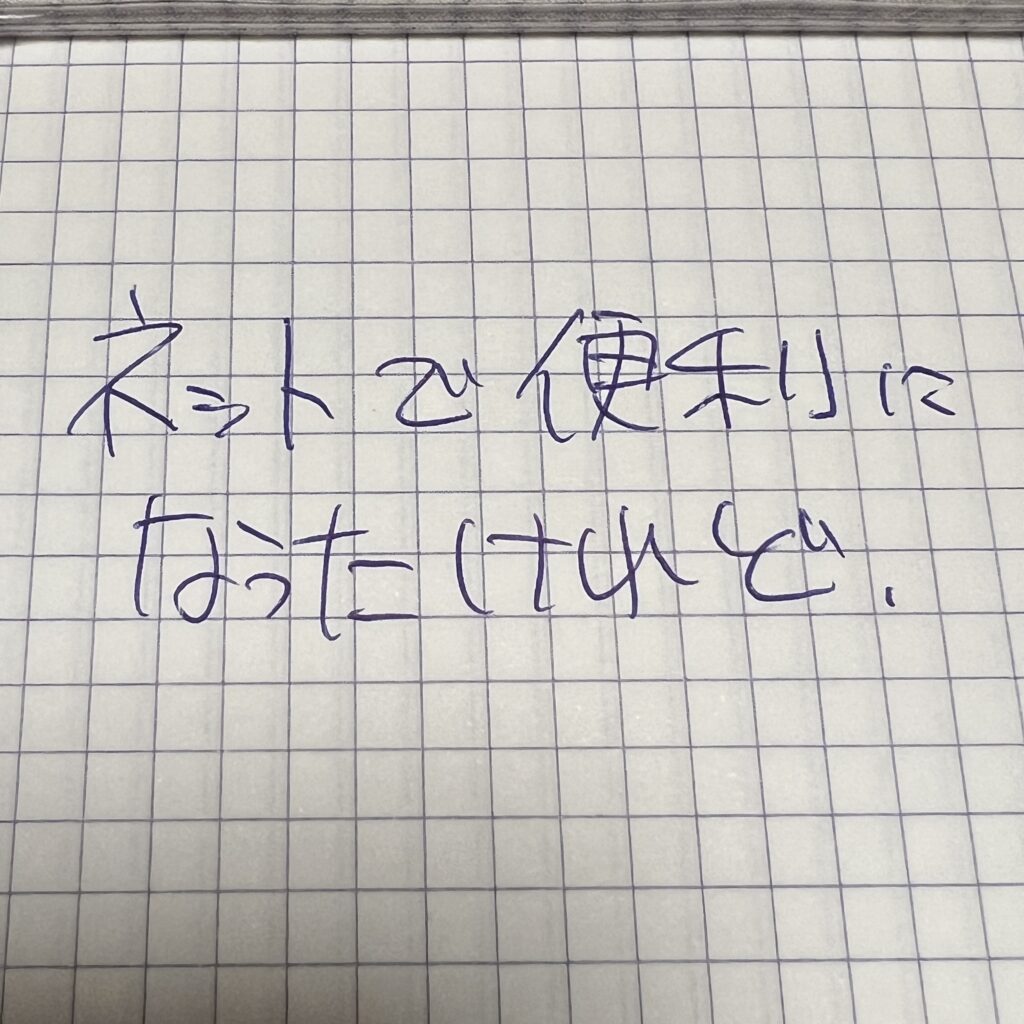 ネットで便利に
なったけれど.